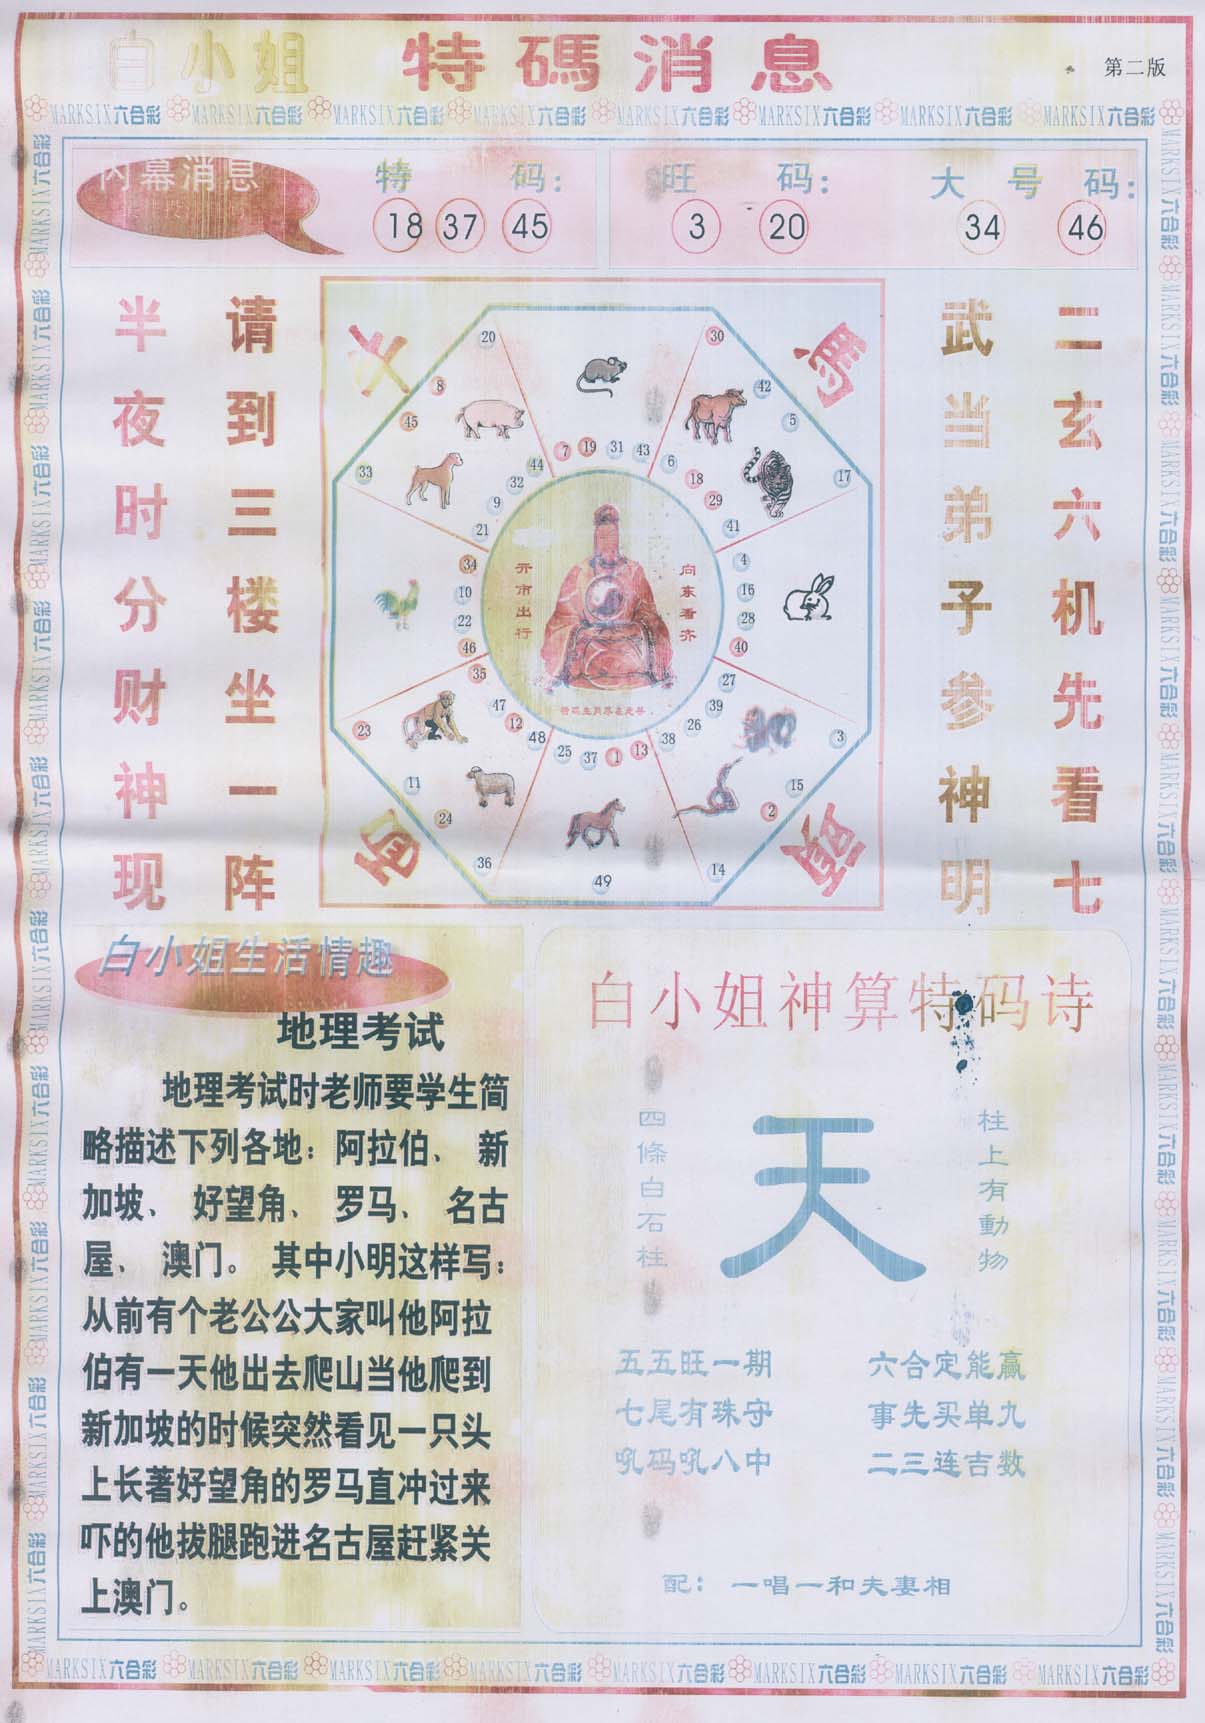 白小姐 特碼消息
第二版
MARKSIX六合彩 MARKSIX六合彩 MARKSIX六合彩 MARKSIX六合彩 MARKSIX六合彩 MARKSIX六合彩 MARKSIX六合彩 MARKSIX六合彩
内幕消息
特码:
18 37 45
旺码:
3 20
大号码:
34 46
半夜时分财神现
请到三楼坐一阵
武当弟子参神明
二玄六机先看七
馬
20
30
8
42
45
5
33
17
7 19 31 43
44
32
9
21
6
18
29
41
34
10
22
46
4
16
28
40
开市出行
向东看齐
35
47
12
48
27
39
26
38
25 37 1 13
23
3
11
15
24
2
36
14
49
白小姐生活情趣
地理考试
地理考试时老师要学生简
略描述下列各地：阿拉伯、新
加坡、好望角、罗马、名古
屋、澳门。其中小明这样写：
从前有个老公公大家叫他阿拉
伯有一天他出去爬山当他爬到
新加坡的时候突然看见一只头
上长著好望角的罗马直冲过来
吓的他拔腿跑进名古屋赶紧关
上澳门。
白小姐神算特码诗
四條白石柱
天
柱上有動物
五五旺一期 六合定能赢
七尾有珠守 事先买单九
吼码吼八中 二三连吉数
配：一唱一和夫妻相
MARKSIX六合彩 MARKSIX六合彩 MARKSIX六合彩 MARKSIX六合彩 MARKSIX六合彩 MARKSIX六合彩 MARKSIX六合彩 MARKSIX六合彩